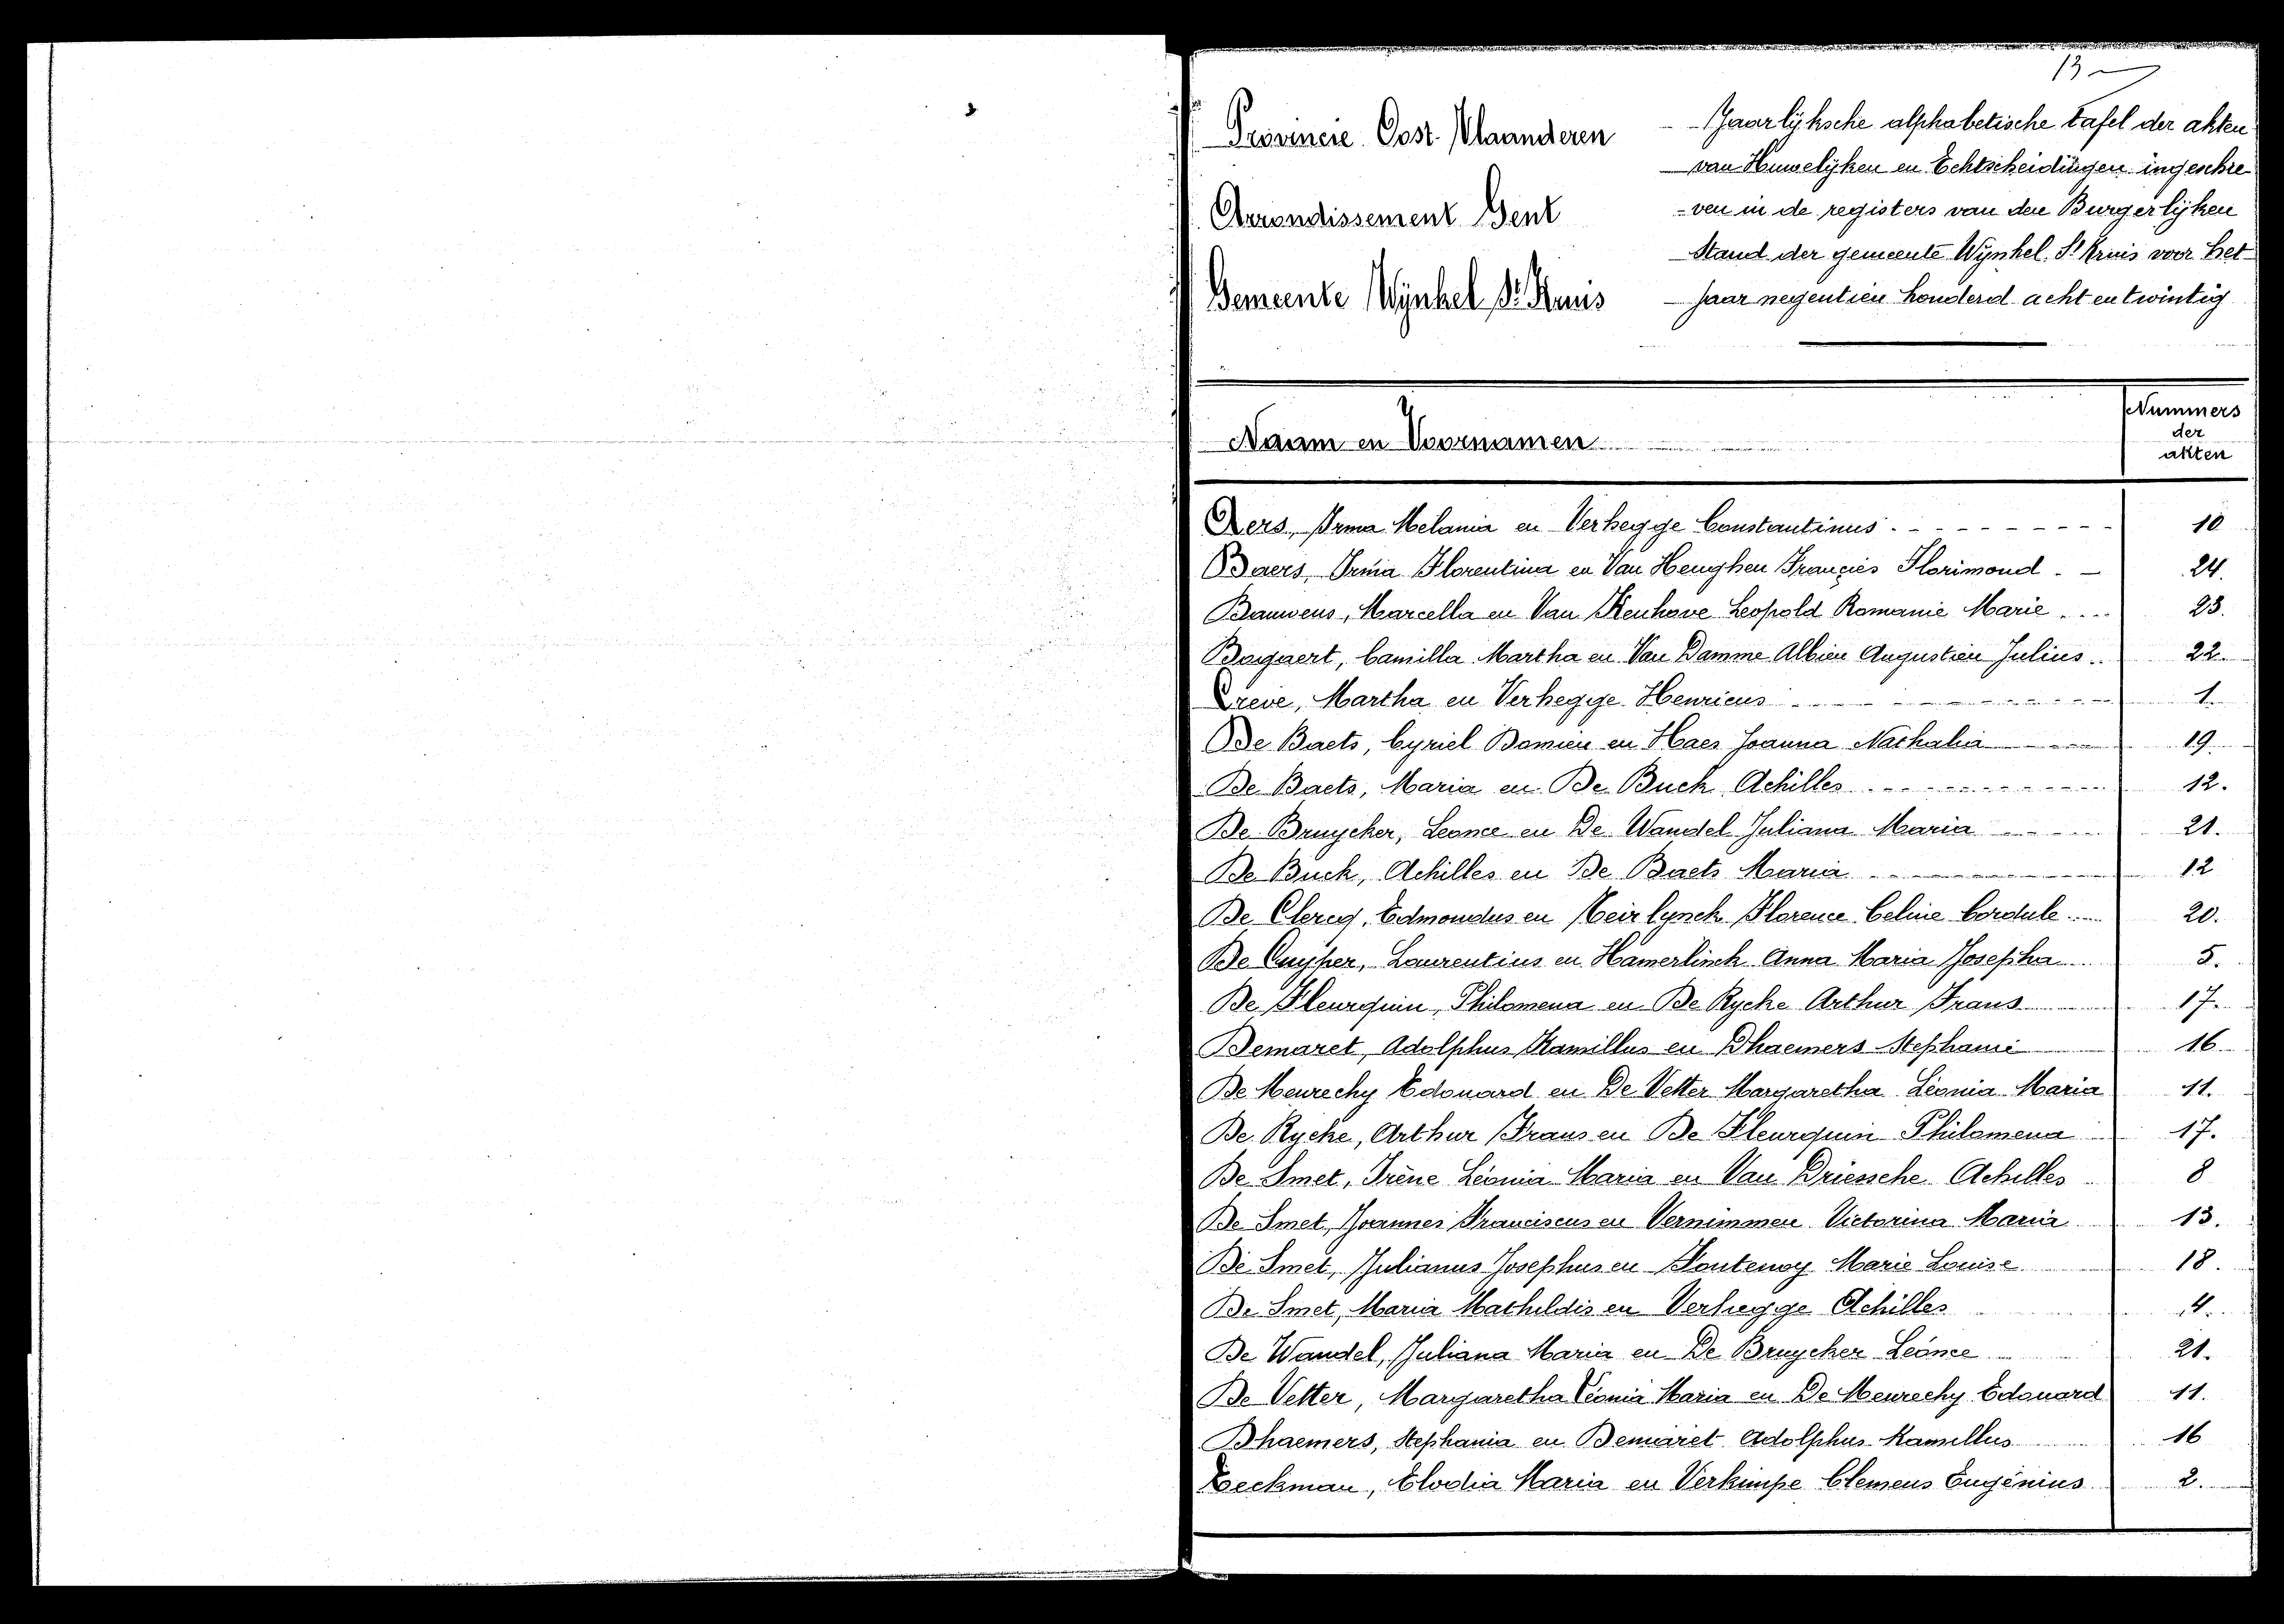 13
Provincie Oost-Vlaanderen
Arrondissement Gent
Gemeente Wynkel St. Kruis
Jaarlyksche alphabetische tafel der akten
van Huwelyken en Echtscheidingen ingeschre-
-ven in de registers van den Burgerlyken
Stand der gemeente Wynkel-St Kruis voor het
jaar negentien honderd acht en twintig
Naam en Voornamen
Nummers
der
akten
Aers, Irma Melania en Verhegge Constantinus 10
Baers, Irma Florentina en Van Henghen Françies Florimond 24.
Bauwens, Marcella en Van Kenhove Leopold Romanie Marie 23.
Bogaert, Camilla Martha en Van Damme Albien Augustien Julius 22.
Creve, Martha en Verhegge Henricus 1.
De Baets, Cyriel Damien en Haes Joanna Nathalia 19
De Baets, Maria en De Buck Achilles 12.
De Bruycker, Leonce en De Wandel Juliana Maria 21.
De Buck, Achilles en De Baets Maria 12
De Clercq, Edmondus en Neirlynck Florence Celine Cordule 20.
De Cuyper, Laurentius en Hamerlinck Anna Maria Josepha 5.
De Fleurquin, Philomena en De Rycke Arthur Frans 17.
Demaret, Adolphus Kamillus en Dhaemers Stephani 16
De Meurechy Edouard en De Vetter Margaretha Léonia Maria 11.
De Rycke, Arthur Frans en De Fleurquin Philomena 17.
De Smet, Irène Léonia Maria en Van Driessche Achilles 8
De Smet, Joannes Franciscus en Vernimmen Victorina Maria 13.
De Smet, Julianus Josephus en Fontenoy Marie Louise 18.
De Smet, Maria Mathildis en Verhegge Achilles 4.
De Wandel, Juliana Maria en De Bruycker Léonce 21.
De Vetter, Margaretha Léonia Maria en De Meurechy Edouard 11.
Dhaemers, Stephania en Demaret Adolphus Kamillus 16
Eeckman, Elodia Maria en Verkimpe Clemens Eugénius 2.